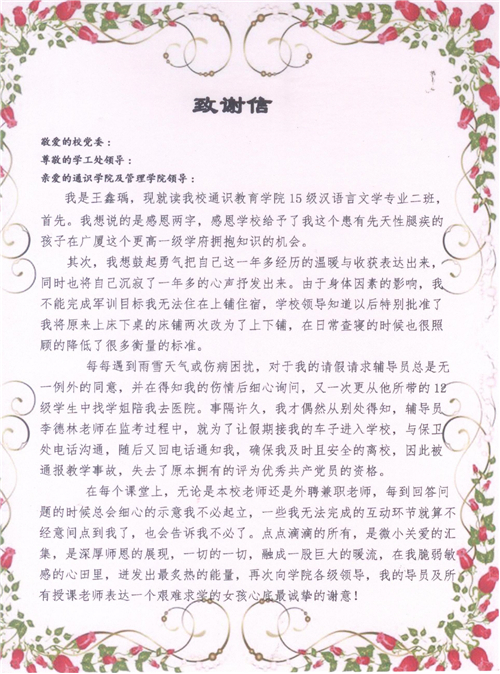 致谢信
敬爱的校党委：
尊敬的学工处领导：
亲爱的通识学院及管理学院领导：
我是王鑫瑀，现就读我校通识教育学院15级汉语言文学专业二班，
首先。我想说的是感恩两字，感恩学校给予了我这个患有先天性腿疾的
孩子在广厦这个更高一级学府拥抱知识的机会。
其次，我想鼓起勇气把自己这一年多经历的温暖与收获表达出来，
同时也将自己沉寂了一年多的心声抒发出来。由于身体因素的影响，我
不能完成军训目标我无法住在上铺住宿，学校领导知道以后特别批准了
我将原来上床下桌的床铺两次改为了上下铺，在日常查寝的时候也很照
顾的降低了很多衡量的标准。
每每遇到雨雪天气或伤病困扰，对于我的请假请求辅导员总是无
一例外的同意，并在得知我的伤情后细心询问，又一次更从他所带的12
级学生中找学姐陪我去医院。事隔许久，我才偶然从别处得知，辅导员
李德林老师在监考过程中，就为了让假期接我的车子进入学校，与保卫
处电话沟通，随后又回电话通知我，确保我及时且安全的离校，因此被
通报教学事故，失去了原本拥有的评为优秀共产党员的资格。
在每个课堂上，无论是本校老师还是外聘兼职老师，每到回答问
题的时候总会细心的示意我不必起立，一些我无法完成的互动环节就算不
经意间点到我了，也会告诉我不必了。点点滴滴的所有，是微小关爱的汇
集，是深厚师恩的展现，一切的一切，融成一股巨大的暖流，在我脆弱敏
感的心田里，迸发出最炙热的能量，再次向学院各级领导，我的导员及所
有授课老师表达一个艰难求学的女孩心底最诚挚的谢意！